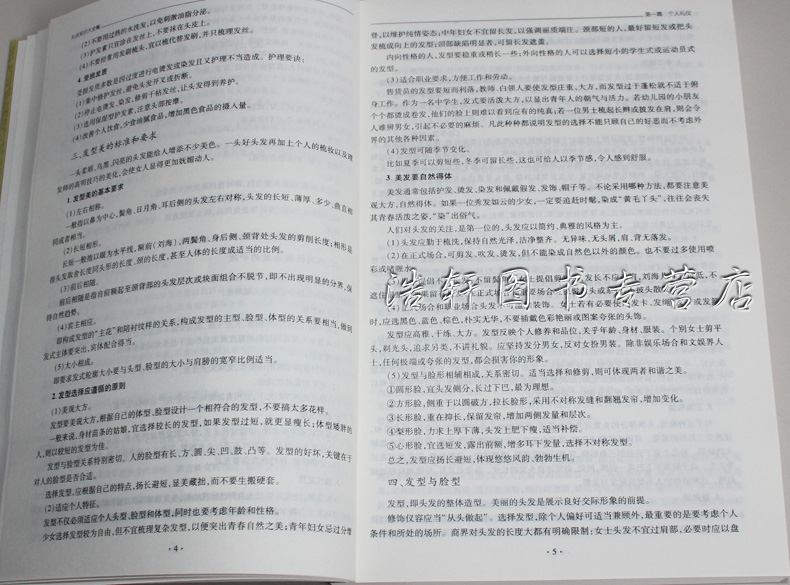 (2)不要用过热的水洗发,以免刺激油脂分泌。
(3)护发素只宜涂在发丝上,不要抹在头皮上。
(4)不要经常用发刷梳头,宜以梳代替发刷,并只梳理发丝。
4.受损发质
受损发质多数是因过度进行电烫发或染发且又护理不当造成。护理要诀:
(1)集中修护发丝,避免发丝开叉或折断。
(2)停止电烫发、染发,修剪干枯发丝,让头发得到养护。
(3)选用保湿型护发素,注意头部按摩。
(4)改善个人饮食,少食油腻食品,增加黑色食品的摄入量。
三、发型美的标准和要求
一头柔顺、乌黑、闪亮的头发能给人增添不少美色。一头好头发再加上个人的梳妆以及理
发师的高明技巧的美化,会使女人显得更加妩媚动人。
1.发型美的基本要求
(1)左右相称。
一般指以鼻为中心,鬓角、日月角、耳后侧的头发左右对称,头发的长短、薄厚、多少、曲直相
同或者相当。
(2)长短相形。
长短一般指以眼为水平线,额前(刘海)、两鬓角、身后侧、颈背处头发的剪削长度;相形是
指头发散会长度同头形的长度、颈的长度,甚至人体的长度成适当的比例。
(3)前后相随。
前后相随是指自前额起至颈背部的头发层次或块面组合不脱节,即不出现明显的分界,保
持自然趋势。
(4)宾主相应。
即构成发型的“主花”和陪衬纹样的关系,构成发型的主型、脸型、体型的关系要相当,做到
发式主体要突出,宾体配合得当。
(5)大小相成。
即要求发式轮廓大小要与头型、脸型的大小与肩膀的宽窄比例适当。
2.发型选择应遵循的原则
(1)美观大方。
发型要美观大方,根据自己的体型、脸型设计一个相符合的发型,不要搞太多花样。
一般来说,身材苗条的姑娘,宜选择较长的发型,如果发型过短,就更显瘦长;体型矮胖的
人,则以较短的发型为佳。
发型与脸型关系特别密切。人的脸型有长、方、圆、尖、凹、鼓、凸等。发型的好坏,关键在于
对人的脸型是否合适。
选择发型,应根据自己的特点,扬长避短,显美藏拙,而不要生搬硬套。
(2)适应个人特征。
发型不仅必须适应个人头型、脸型和体型,同时也要考虑年龄和性格。
少女选择发型较为自由,但不宜梳理复杂发型,以便突出青春自然之美;青年妇女忌过分修
·4·
第一篇 个人礼仪
督,以维护纯情姿态;中年妇女不宜留长发,以强调丽质端庄。颈部短的人,最好留短发或把头
发梳成向上的发型;颈部缺陷明显者,可留长发遮盖。
内向性格的人,发型要稳重或稍长一些;外向性格的人可以选择短小的学生式或运动员式
的发型。
(3)适合职业要求,方便工作和劳动。
售货员的发型要短而利落,教师、白领人要使发型庄重、大方,而发型过于蓬松就不适于俯
身工作。作为一名中学生,发式要活泼大方,以显出青年人的朝气与活力。若幼儿园的小朋友
个个都烫成卷发,他们的脸上则难以看到应有的纯真;若一位男士梳起长辫或披发在肩,则会令
人难辨男女,引起不必要的麻烦。凡此种种都说明发型的选择不能只顾自己的好恶而不考虑外
界的其他各种因素。
(4)发型可随季节变化。
比如夏季可以剪短些,冬季可留长些,这也可给人以季节感,令人感到舒服。
3.美发要自然得体
美发通常包括护发、烫发、染发和佩戴假发、发饰、帽子等。不论采用哪种方法,都要注意美
观大方、自然得体。如果一位秀发如云的少女,一定要追赶时髦,染成“黄毛丫头”,往往会丧失
其青春活泼之姿,“染”出俗气。
人们对头发的关注,是第一位的,头发应以简约、典雅的风格为主。
(1)头发应勤于梳洗,保持自然光泽,洁净整齐。无异味,无头屑,肩、背无落发。
(2)在正式场合,可剪发、吹发、烫发,但不能染成自然色以外的颜色。也不要过多使用喷
彩或
浩轩图书专营店
时,应选黑色、蓝色、棕色,朴实无华,不要插戴色彩艳丽或图案夸张的头饰。
发型应高雅、干练、大方。发型反映个人修养和品位,关乎年龄、身材、服装。个别女士剪平
头,剃光头,追求另类,不讲礼貌。应坚持发分男女,反对女扮男装。除非娱乐场合和文娱界人
士,任何极端或夸张的发型,都会损害你的形象。
(5)发型与脸形相辅相成,关系密切。适当选择和修剪,则可体现两者和谐之美。
①圆脸形,宜头发侧分,长过下巴,最为理想。
②方脸形,侧重于以圆破方,拉长脸形,采用不对称发缝和翻翘发帘,增加变化。
③长形脸,重在抑长,保留发帘,增加两侧发量和层次。
④梨形脸,力求上厚下薄,头发上肥下瘦,适当补偿。
⑤心形脸,宜选短发,露出前额,增多耳下发量,选择不对称发型。
总之,发型应扬长避短,体现悠悠风韵、勃勃生机。
四、发型与脸型
发型,即头发的整体造型。美丽的头发是展示良好交际形象的前提。
修饰仪容应当“从头做起”。选择发型,除个人偏好可适当兼顾外,最重要的是要考虑个人
条件和所处的场所。商界对头发的长度大都有明确限制;女士头发不宜过肩部,必要时应以盘
·5·